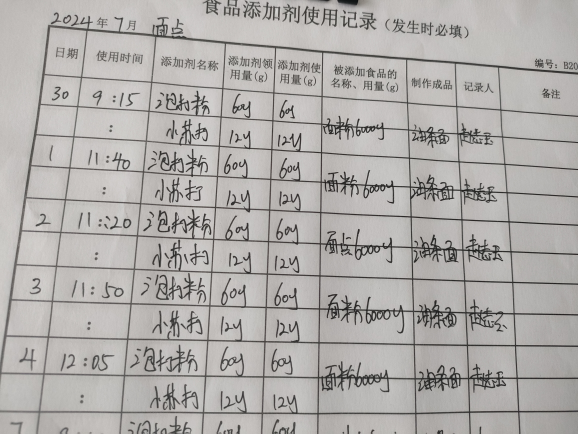 食品添加剂使用记录（发生时必填）
2024年7月 面点
编号：B20
日期 使用时间 添加剂名称 添加剂领用量(g) 添加剂使用量(g) 被添加食品的名称、用量(g) 制作成品 记录人 备注
30 9:15 泡打粉 60g 60g 面粉6000g 油条面
: 小苏打 12g 12g
1 11:40 泡打粉 60g 60g 面粉6000g 油条面
: 小苏打 12g 12g
2 11:20 泡打粉 60g 60g 面点6000g 油条面
: 小苏打 12g 12g
3 11:50 泡打粉 60g 60g 面粉6000g 油条面
: 小苏打 12g 12g
4 12:05 泡打粉 60g 60g 面粉6000g 油条面
: 小苏打 12g 12g
泡打粉 60g 60g